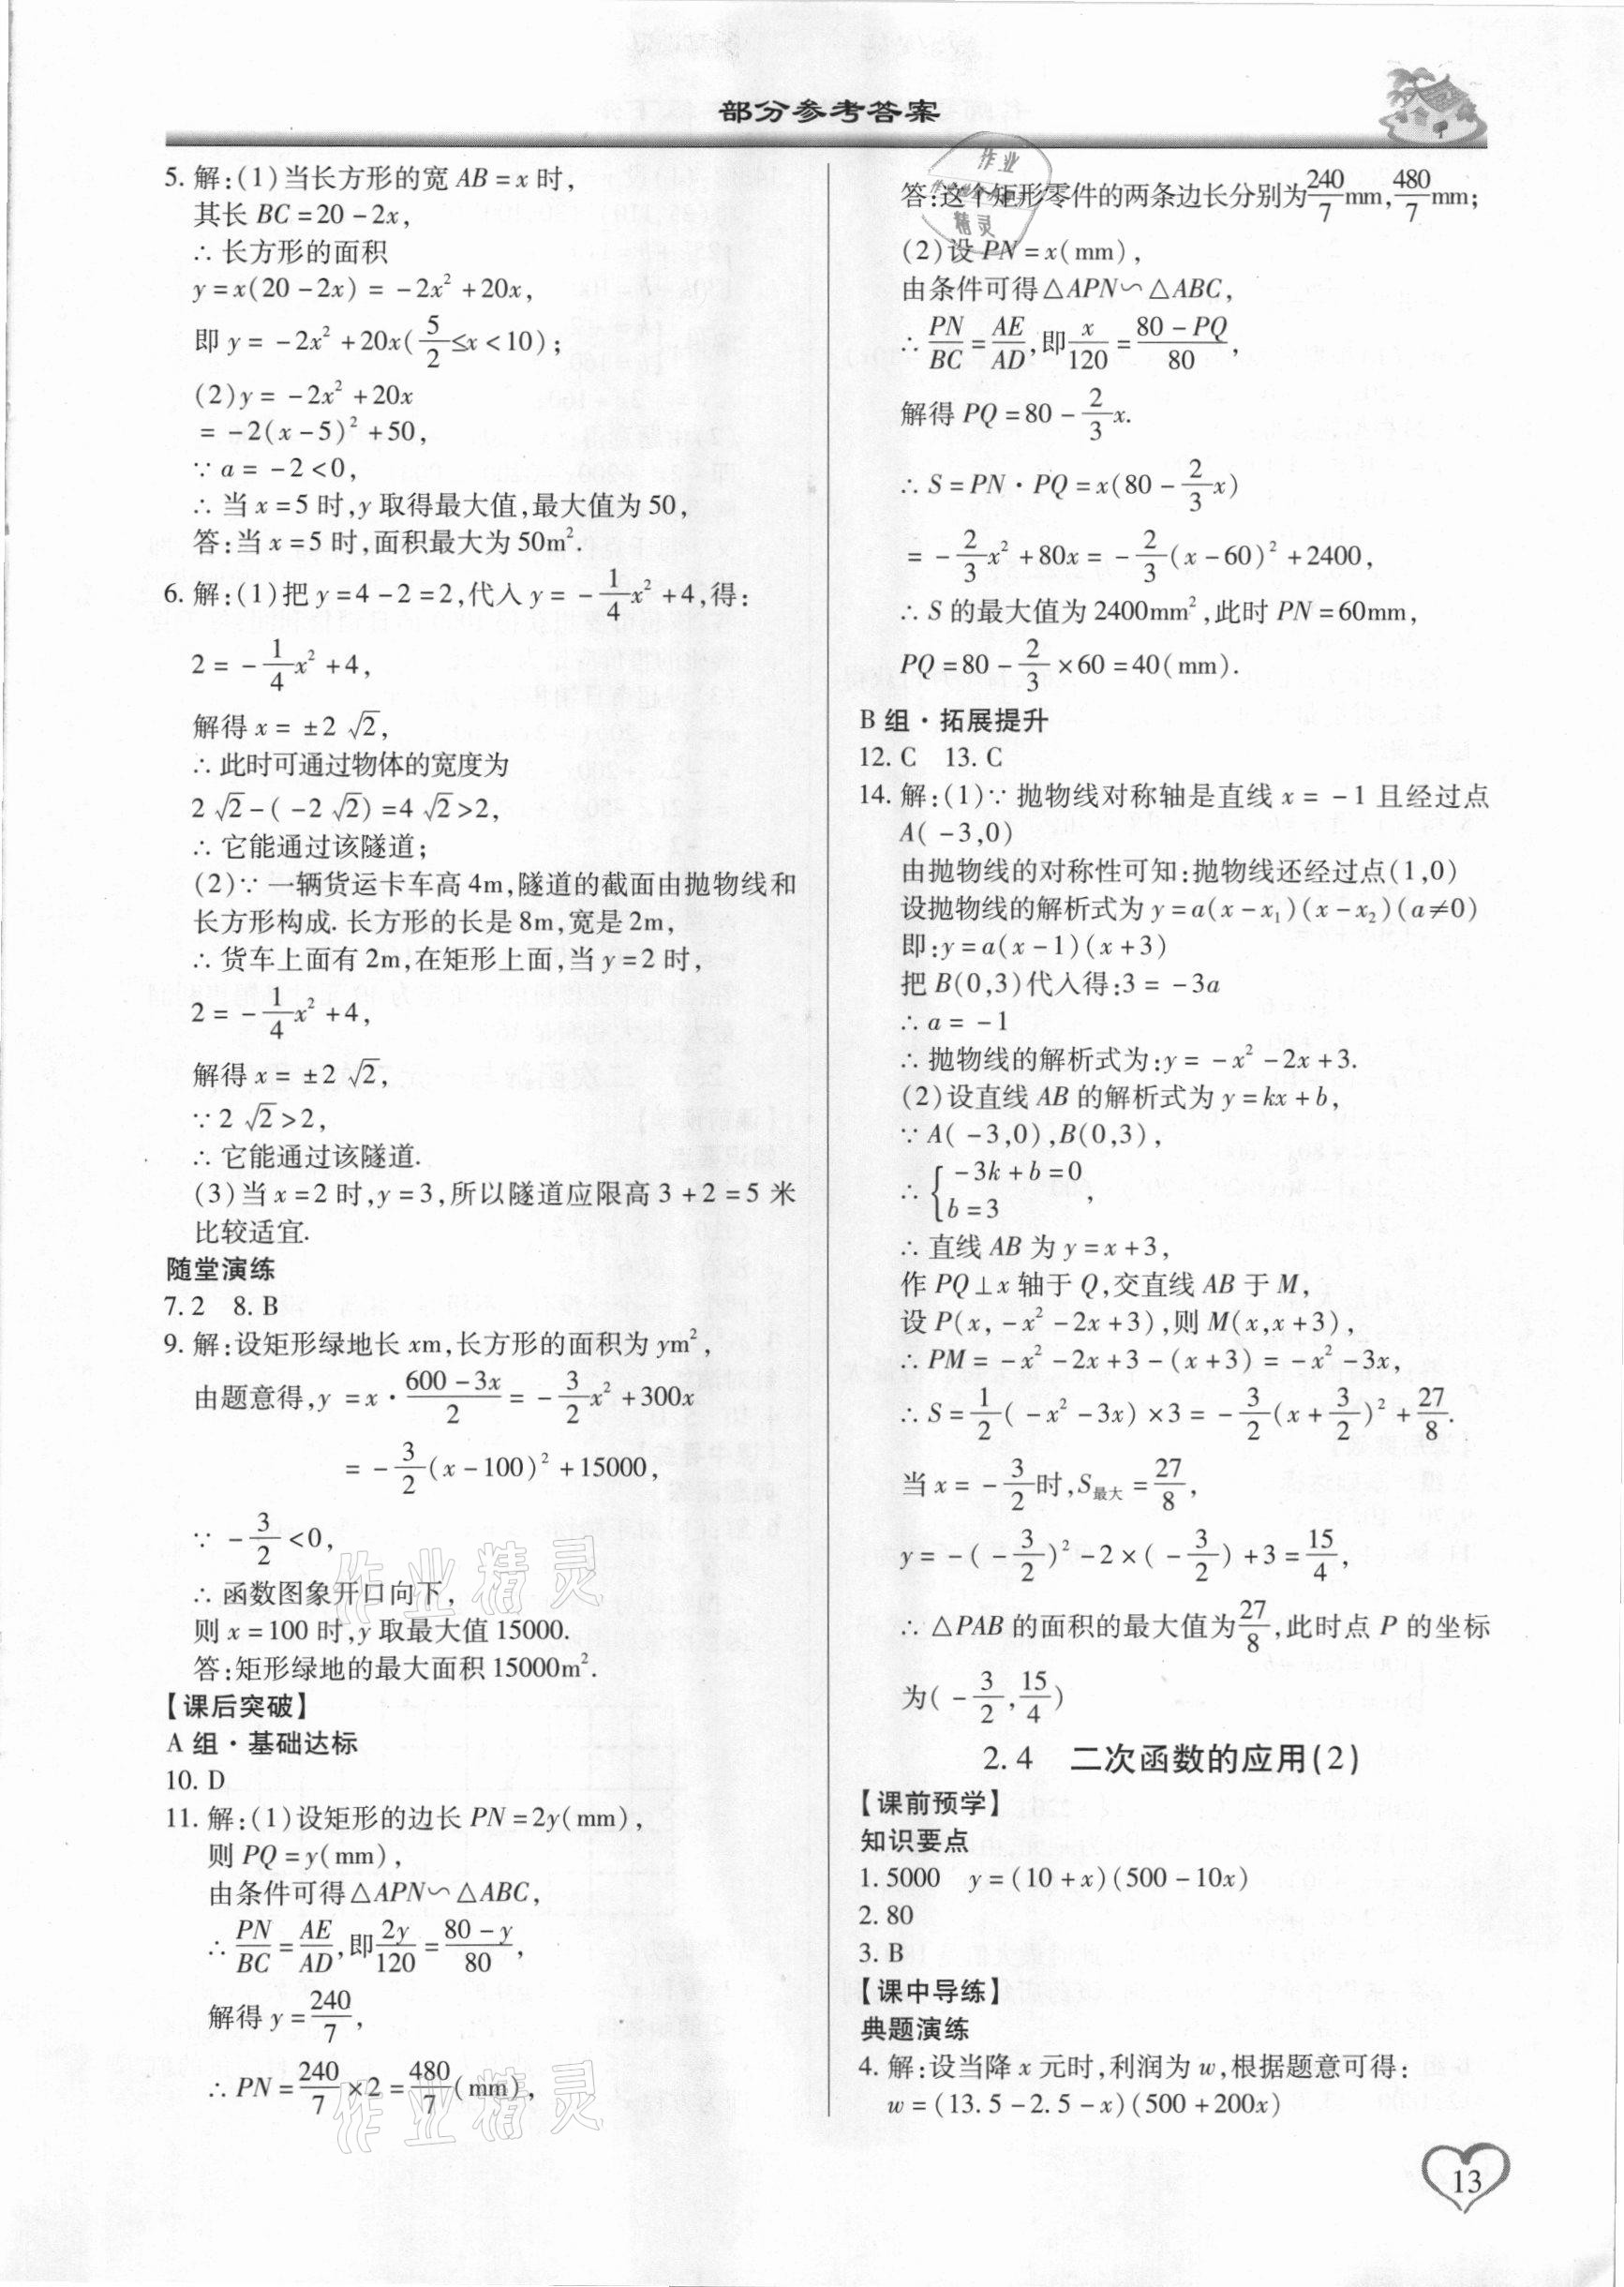 部分参考答案
5. 解:(1)当长方形的宽 AB=x 时,
其长 BC=20-2x,
∴ 长方形的面积
y=x(20-2x) = -2x²+20x,
即 y= -2x²+20x(5/2≤x<10);
(2)y= -2x²+20x
= -2(x-5)²+50,
∵ a= -2<0,
∴ 当 x=5 时,y 取得最大值,最大值为 50,
答:当 x=5 时,面积最大为 50m².
6. 解:(1)把 y=4-2=2,代入 y= -1/4x²+4,得:
2= -1/4x²+4,
解得 x= ±2√2,
∴ 此时可通过物体的宽度为
2√2-(-2√2)=4√2>2,
∴ 它能通过该隧道;
(2)∵ 一辆货运卡车高 4m,隧道的截面由抛物线和
长方形构成. 长方形的长是 8m,宽是 2m,
∴ 货车上面有 2m,在矩形上面,当 y=2 时,
2= -1/4x²+4,
解得 x= ±2√2,
∵ 2√2>2,
∴ 它能通过该隧道.
(3)当 x=2 时,y=3,所以隧道应限高 3+2=5 米
比较适宜.
随堂演练
7. 2 8. B
9. 解:设矩形绿地长 xm,长方形的面积为 ym²,
由题意得,y =x·(600-3x)/2= -3/2x²+300x
= -3/2(x-100)²+15000,
∵ -3/2<0,
∴ 函数图象开口向下,
则 x=100 时,y 取最大值 15000.
答:矩形绿地的最大面积 15000m².
【课后突破】
A 组·基础达标
10. D
11. 解:(1)设矩形的边长 PN=2y(mm),
则 PQ=y(mm),
由条件可得△APN∽△ABC,
∴ PN/BC=AE/AD,即2y/120=(80-y)/80,
解得 y=240/7,
∴ PN=240/7×2=480/7(mm),
答:这个矩形零件的两条边长分别为240/7mm,480/7mm;
(2)设 PN=x(mm),
由条件可得△APN∽△ABC,
∴ PN/BC=AE/AD,即x/120=(80-PQ)/80,
解得 PQ=80-2/3x.
∴ S=PN·PQ=x(80-2/3x)
= -2/3x²+80x= -2/3(x-60)²+2400,
∴ S 的最大值为 2400mm²,此时 PN=60mm,
PQ=80-2/3×60=40(mm).
B 组·拓展提升
12. C 13. C
14. 解:(1)∵ 抛物线对称轴是直线 x= -1 且经过点
A(-3,0)
由抛物线的对称性可知:抛物线还经过点(1,0)
设抛物线的解析式为 y=a(x-x₁)(x-x₂)(a≠0)
即:y=a(x-1)(x+3)
把 B(0,3)代入得:3= -3a
∴ a= -1
∴ 抛物线的解析式为:y= -x²-2x+3.
(2)设直线 AB 的解析式为 y=kx+b,
∵ A(-3,0),B(0,3),
∴ {-3k+b=0
b=3,
∴ 直线 AB 为 y=x+3,
作 PQ⊥x 轴于 Q,交直线 AB 于 M,
设 P(x,-x²-2x+3),则 M(x,x+3),
∴ PM= -x²-2x+3-(x+3)= -x²-3x,
∴ S=1/2(-x²-3x)×3= -3/2(x+3/2)²+27/8.
当 x= -3/2时,S最大=27/8,
y= -(-3/2)²-2×(-3/2)+3=15/4,
∴ △PAB 的面积的最大值为27/8,此时点 P 的坐标
为(-3/2,15/4)
2.4 二次函数的应用(2)
【课前预学】
知识要点
1. 5000 y=(10+x)(500-10x)
2. 80
3. B
【课中导练】
典题演练
4. 解:设当降 x 元时,利润为 w,根据题意可得:
w=(13.5-2.5-x)(500+200x)
13
作业
精灵
作业精灵
作业精灵